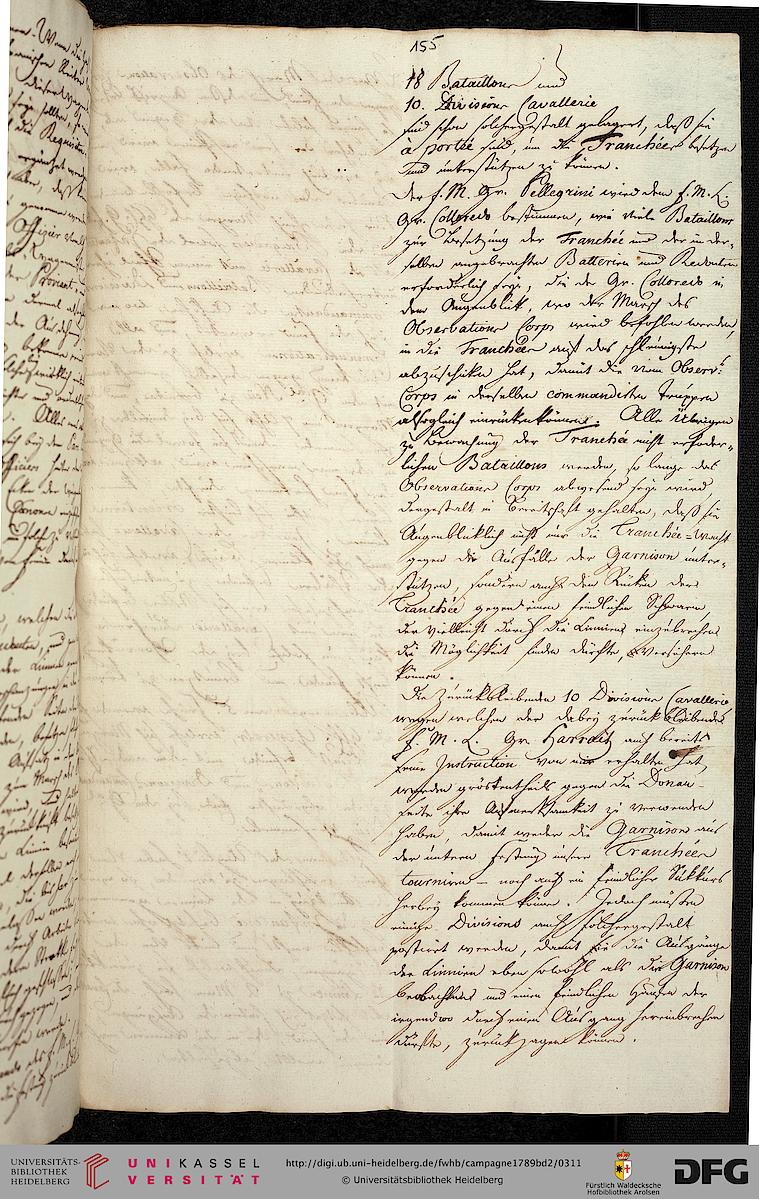 155
18 Bataillons und
10. Divisions Cavallerie
sind schon solchergestalt gelagert, daß sie
à portée sind, um die Tranchéen besetzen
und unterstützen zu können.
Der F. M. Gr. Pellegrini wird dem F. M. L.
Gr. Colloredo bestimmen, wie viele Bataillons
zur Besetzung der Tranchée und der in der-
selben angebrachten Batterien und Redouten
erforderlich seye, die der Gr. Colloredo in
dem Augenblick, wo der Marsch des
Observations Corps wird befohlen werden,
in die Tranchéen auf das schleunigste
abzuschicken hat, damit die vom Observ:
Corps in derselben commandirten Truppen
alsogleich einrücken können. Alle Übrigen
zu Bewachung der Tranchée nicht erforder-
lichen Bataillons werden, so lange das
Observations Corps abwesend seyn wird
dergestalt in Bereitschaft gehalten, daß sie
Augenblicklich nicht nur die Tranchée-Wacht
gegen die Ausfälle der Garnison unter-
stützen, sondern auch den Rücken der
Tranchée gegen einen feindlichen Schwarm
der vielleicht durch die Linniens einzubrechen
die Möglichkeit finden dürfte, versichern
können.
Die Zurückbleibenden 10 Divisions Cavallerie
wegen welchen der dabey zurückbleibende
F. M. L. Gr. Harrach auch bereits
seine Instruction von mir erhalten hat,
werden gröstentheils gegen die Donau-
seite ihre Aufmerksamkeit zu verwenden
haben, damit weder die Garnison aus
der untern Festung unsere Tranchéen
tourniren – noch auch ein feindlicher Sukkurs
herbey kommen könne. Jedoch müßen
einige Divisions auch solchergestalt
postiret werden, damit sie die Ausgänge
der Linnien eben sowohl als die Garnison
beobachten und einen feindlichen Haufen der
irgendwo durch einen Ausgang hereinbrechen
dürfte, zurückjagen können.
UNIVERSITÄTS-
BIBLIOTHEK
HEIDELBERG
UNIKASSEL
VERSITÄT
http://digi.ub.uni-heidelberg.de/fwhb/campagne1789bd2/0311
© Universitätsbibliothek Heidelberg
Fürstlich Waldecksche
Hofbibliothek Arolsen
DFG